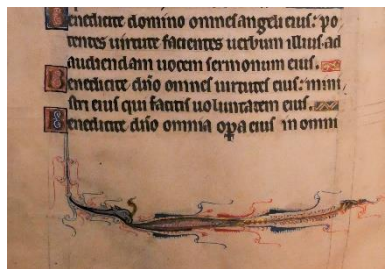 Benedicite domino omnes angeli eius: po
tentes uirtute facientes uerbum illius ad
audiendam uocem sermonum eius.
Benedicite dño omnes uirtutes eius: mini
stri eius qui facitis uoluntatem eius.
Benedicite dño omnia opa eius in omni